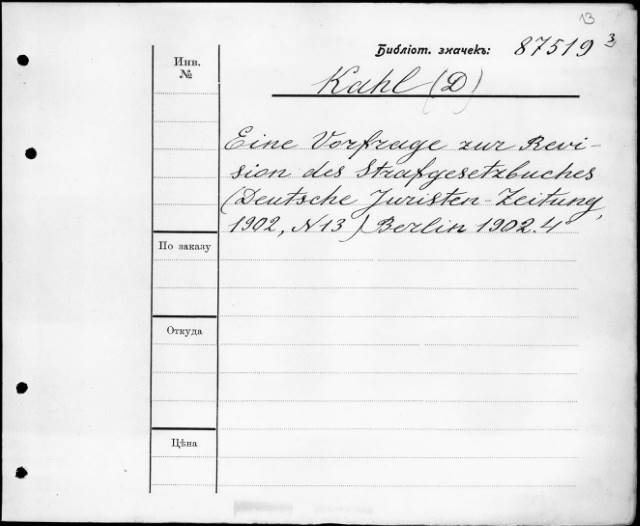 13
Библіот. значекъ: 87519 3
Инв.
№
Kahl (D)
Eine Vorfrage zur Revi-
sion des Strafgesetzbuches
(Deutsche Juristen-Zeitung,
1902, N 13) Berlin 1902. 4°
По заказу
Откуда
Цѣна